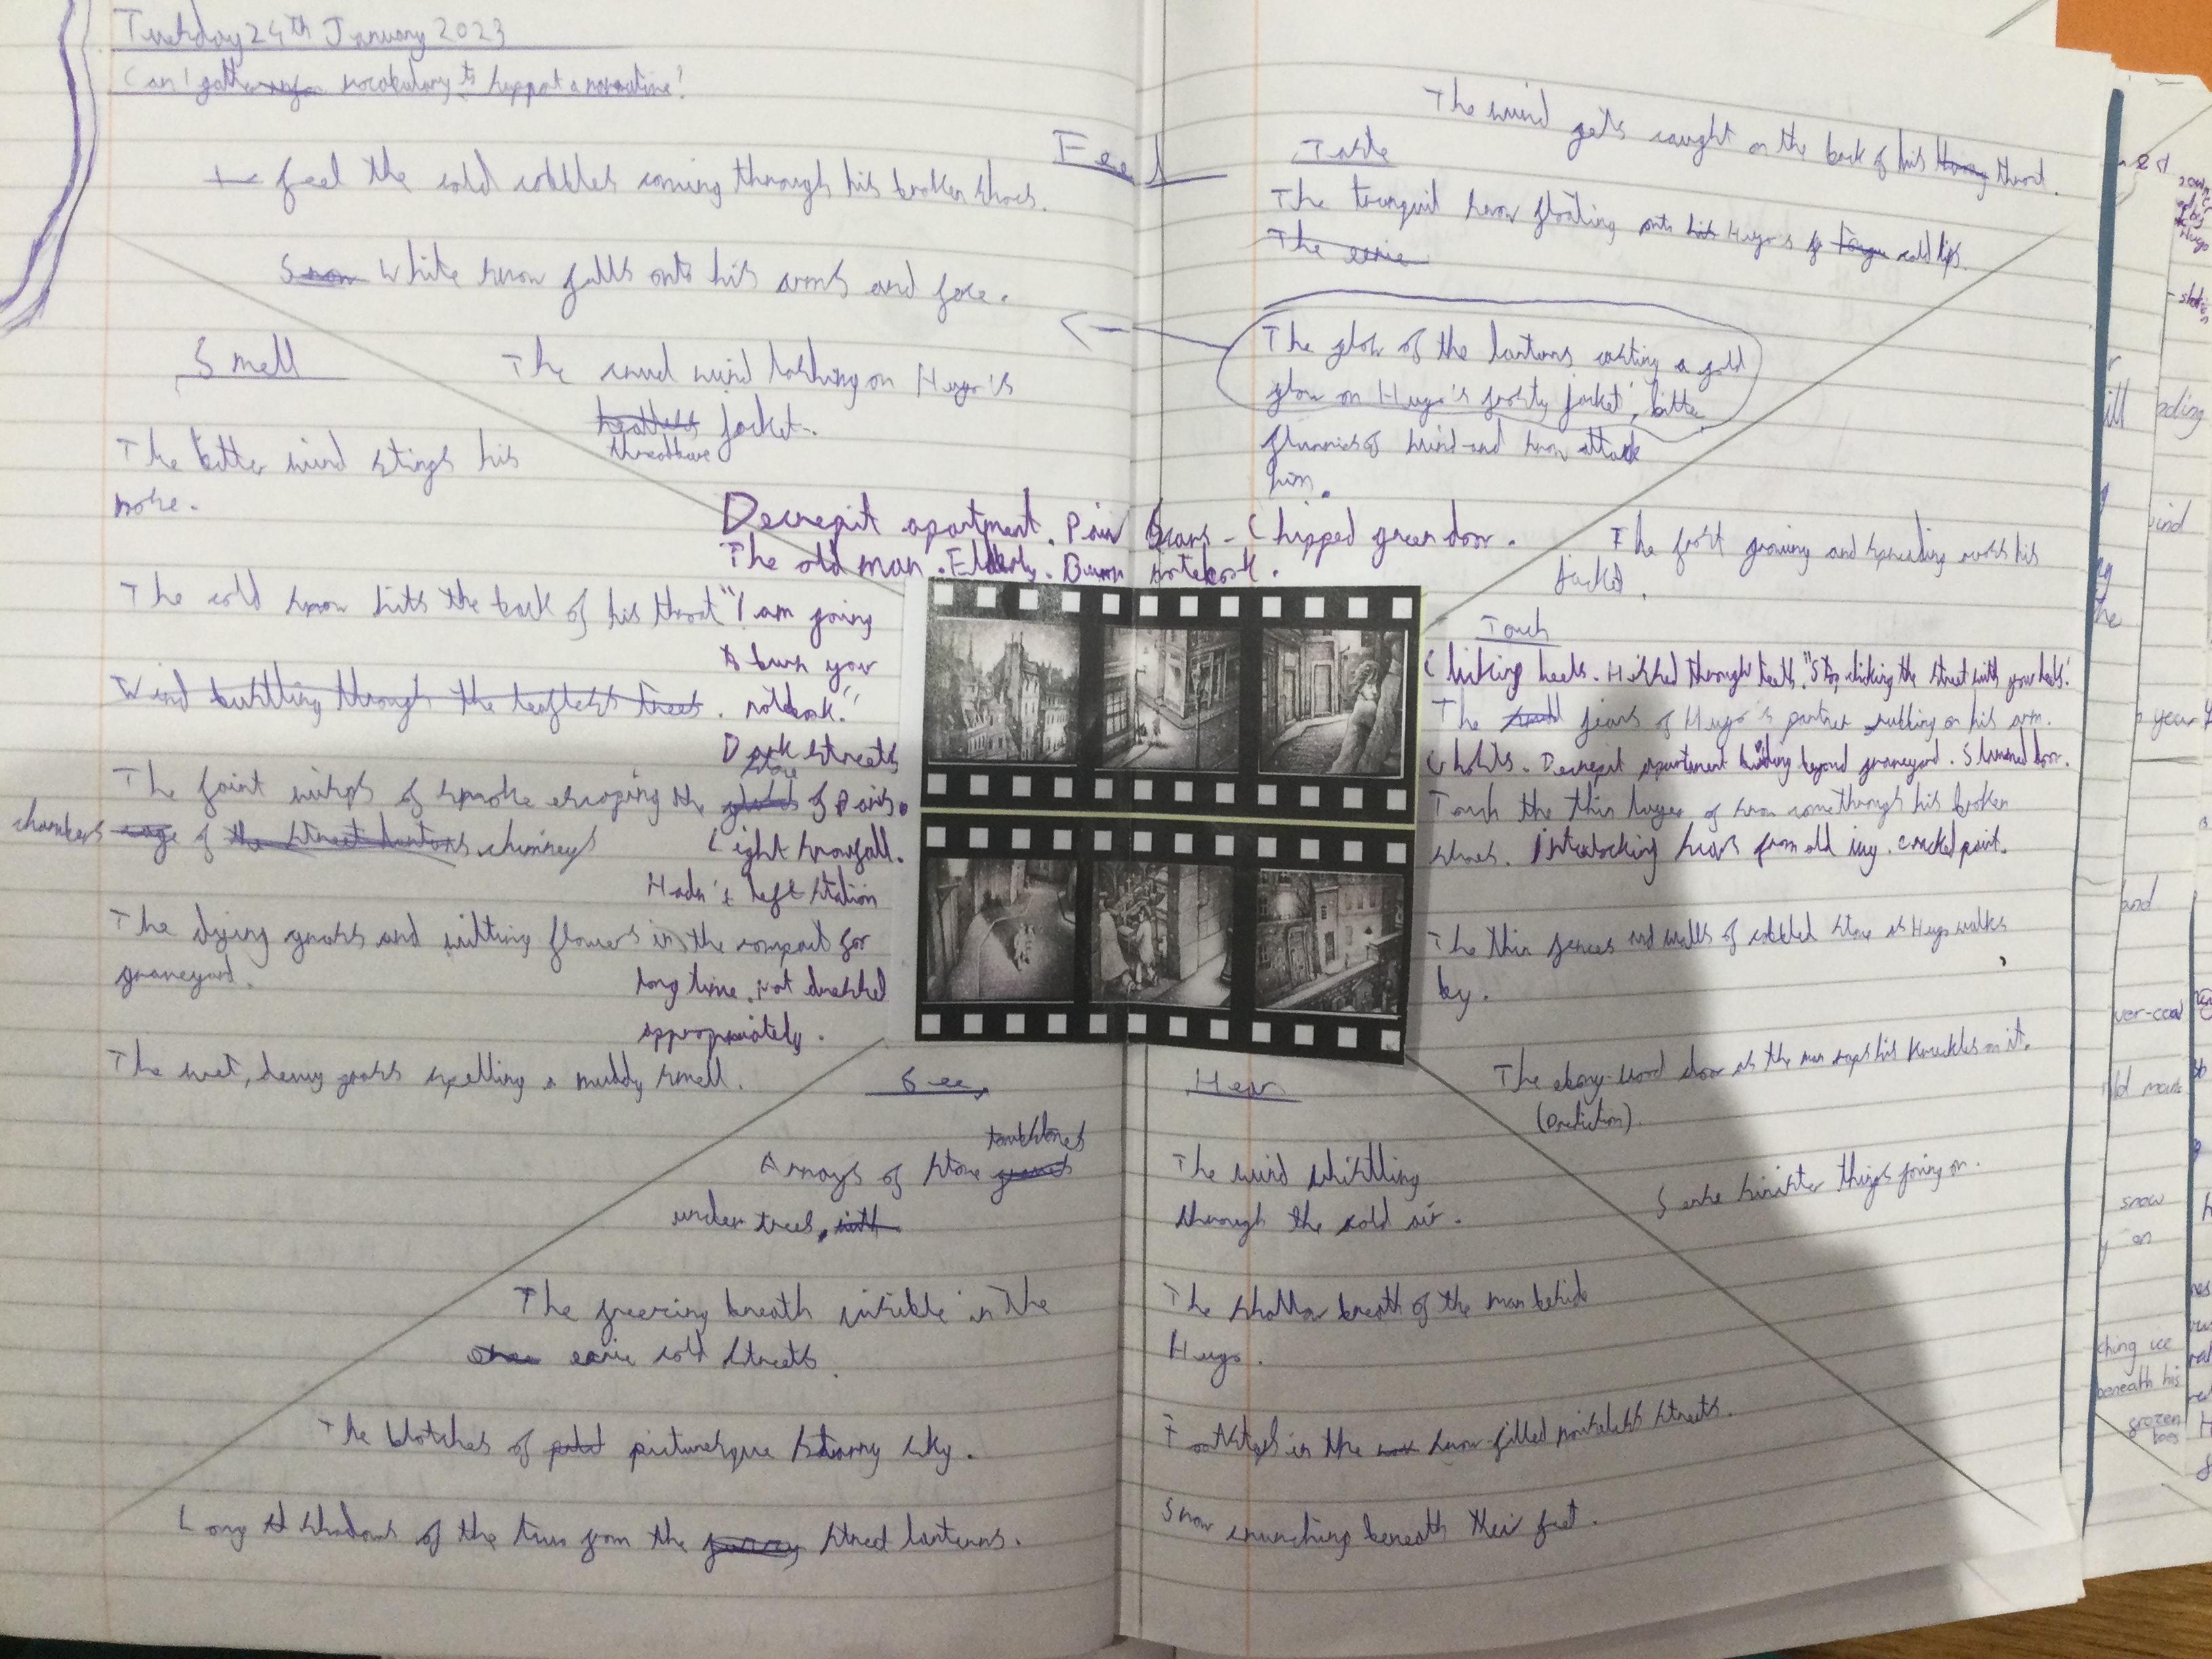 Tuesday 24th January 2023
Can I gather vocabulary to support a narrative?
Feel
I feel the cold cobbles coming through his broken shoes.
Snow White snow falls onto his arms and face.
The cruel wind lashing on Hugo's
heatless jacket.
threadbare
Smell
The bitter wind stings his
nose.
The cold snow hits the back of his throat
Wind bustling through the leafless trees.
The faint wisps of smoke escaping the of
chambers cage of the street lanterns chimneys
The dying grass and wilting flowers in the compact
graveyard.
The wet, dewy grass spelling a muddy smell.
Decrepit apartment. Pair Chipped green door.
The old man. Elderly. Burn notebook.
"I am going
to burn your
notebook."
Dark streets
of Paris.
Light snowfall.
Hadn't left station
for
long time. Not dressed
appropriately.
See
Arrays of stone graves
tombstones
under trees, with
The freezing breath visible in the
eerie cold streets.
The blotches of picturesque starry sky.
Long shadows of the two from the street lanterns.
Taste
The wind gets caught on the back of his throat.
The tranquil snow floating onto his Hugo's tongue cold lips.
The eerie
The glow of the lanterns casting a gold
glow on Hugo's frosty jacket, bitter
flurries of wind and snow attack
him.
The frost growing and spreading across his
jacket.
Touch
Clicking heels. Hissed through teeth. "Stop clicking the street with your heels."
The of Hugo's partner rubbing on his arm.
Ghosts. Decrepit apartment building beyond graveyard. Slammed door.
Touch the thin layer of snow come through his broken
shoes. Interlocking from old ivy. cracked paint.
The thin fences and walls of cobbled stone as Hugo walks
by.
The ebony-wood door as the man raps his knuckles on it.
(Prediction).
Sense sinister things going on.
Hear
The wind whistling
through the cold air.
The shallow breath of the man beside
Hugo.
Footsteps in the snow-filled noiseless streets.
Snow crunching beneath their feet.
snow
on
ching ice
beneath his
frozen
toes